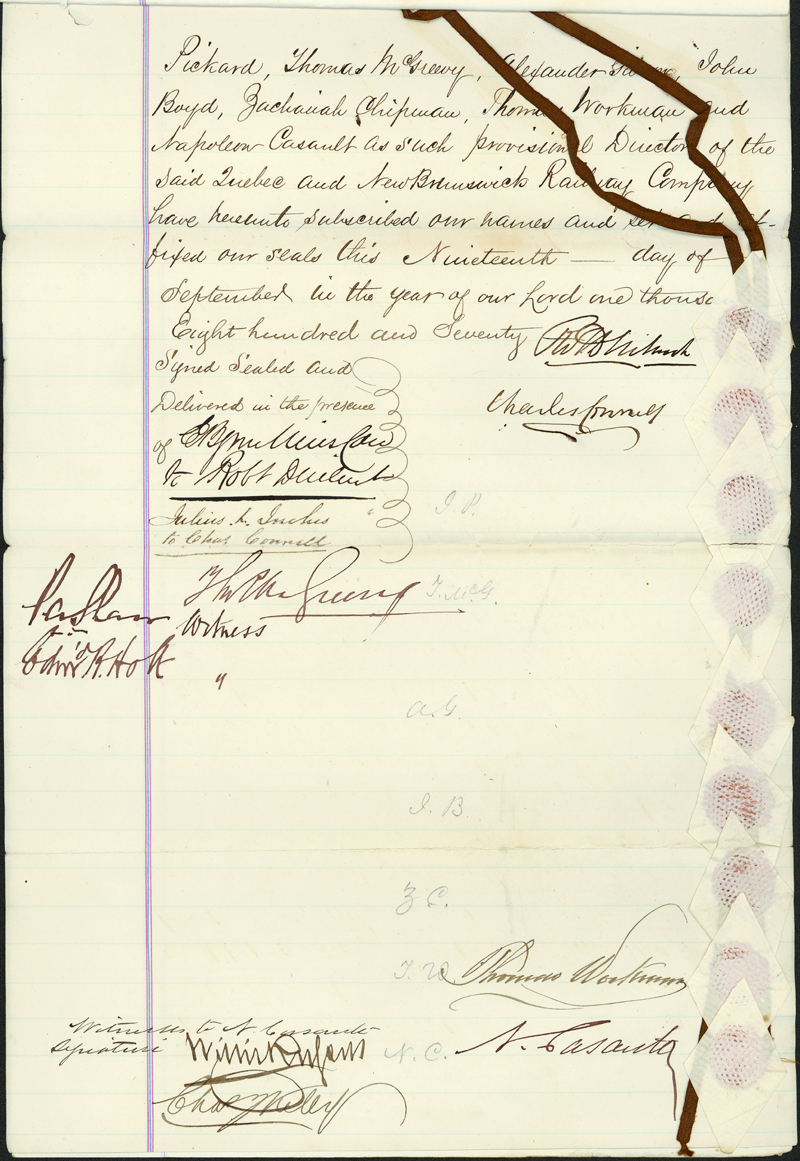 Pickard, Thomas McGreevy, Alexander Gibson, John
Boyd, Zachariah Chipman, Thomas Workman and
Napoleon Casault as such provisional Directors of the
said Quebec and New Brunswick Railway Company
have hereunto subscribed our names and set and af-
fixed our seals this Nineteenth — day of
September in the year of our Lord one thous
Eight hundred and Seventy
Signed Sealed and
Delivered in the presence
Charles Connell
of
to Robt
Julius L. Inches
to Chas. Connell
J. P.
Thos McGreevy T. McG.
Witness
to
Edwd R. Holt "
A. G.
J. B.
Z. C.
T. W. Thomas Workman
Witnesses to N. Casault
signature
N. C. N. Casault
Chas